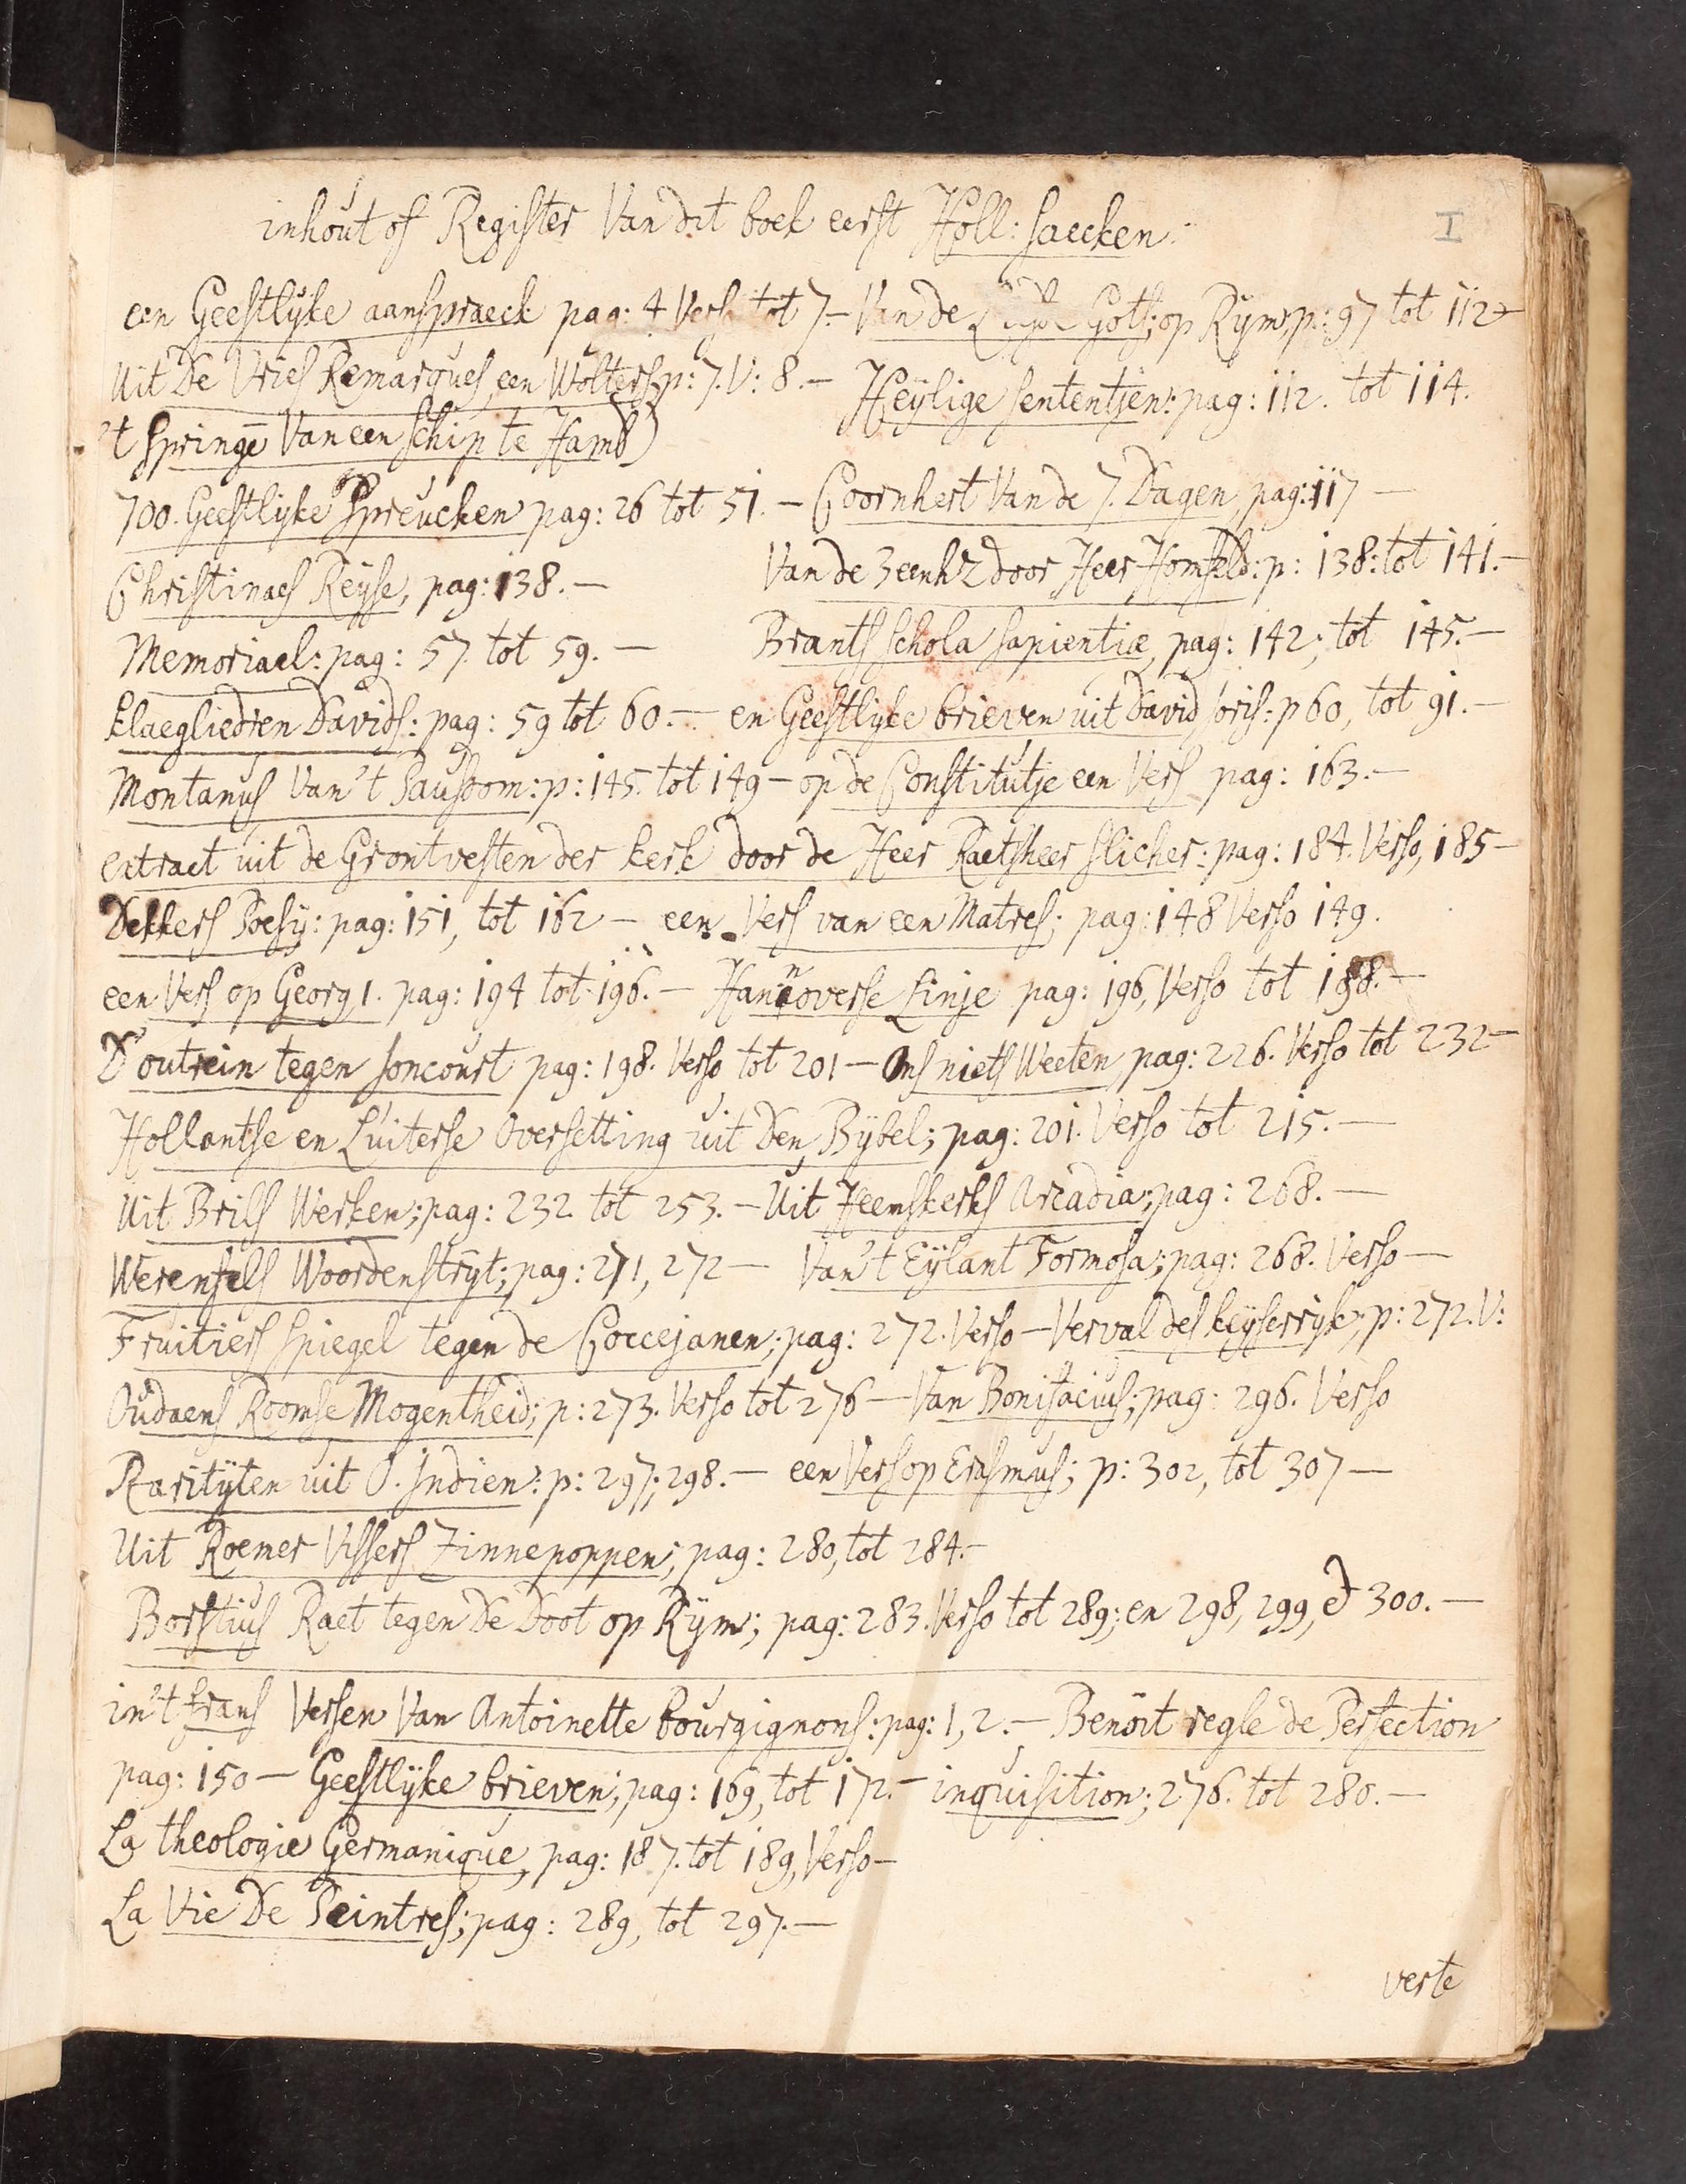 inhout of Register Van dit boek eerst Holl: saecken.
I
een Geestlyke aanspraeck pag: 4 Verso tot 7.– Van de Gots; op Rÿm, p.: 97 tot 112
Uit De Vries Remarques, een Wolters p: 7. V: 8.– Heÿlige sententjen: pag: 112. tot 114.
't Springē Van een Schip te Hamb)
700. Geestlyke Spreucken pag: 26 tot 51.– Coornhert Van de 7. Dagen, pag: 117 –
Christinaes Reÿse, pag: 138.– Van de 3eenh? door Heer Homfeld: p: 138: tot 141.–
Memoriael: pag: 57. tot 59.– Brants schola sapientiæ, pag: 142; tot 145.–
klaegliedren Davids: pag: 59 tot 60.– en Geestlyke brieven uit David joris: p 60, tot 91.–
Montanus Van 't Pausdom: p: 145. tot 149 – op de Constitutje een Vers pag: 163.–
extract uit de Grontvesten der kerk door de Heer Raetsheer slicher: pag: 184. Verso, 185 –
Dekkers Poesÿ: pag: 151, tot 162 – een Vers van een Matres; pag: 148 Verso 149.
een Vers op Georg 1. pag: 194 tot 196.– Hannoverse Linje pag: 196, Verso tot 198.–
D'outrein tegen Joncourt pag: 198. Verso tot 201 – Ons niets Weeten, pag: 226. Verso tot 232 –
Hollantse en Luiterse Oversetting uit Den Bÿbel; pag: 201. Verso tot 215.–
Uit Brils Werken; pag: 232 tot 253.– Uit Heemskerks Arcadia; pag: 268.–
Werenfels Woordenstrÿt; pag: 271, 272 – Van 't Eÿlant Formosa; pag: 268. Verso –
Fruitiers spiegel tegen de Coccejanen; pag: 272. Verso – Verval des keÿserrÿk; p: 272. V:
Oudaens Roomse Mogentheid; p: 273. Verso tot 276 – Van Bonifacius; pag: 296. Verso
Raritÿten uit O. Indien: p: 297; 298.– een Vers op Erasmus; p: 302, tot 307 –
Uit Roemer Vissers Zinnepoppen; pag: 280, tot 284.–
Borstius Raet tegen De Doot op Rÿm; pag: 283. Verso tot 289; en 298, 299, & 300.–
in 't frans Versen Van Antoinette bourgignons: pag: 1, 2.– Benoit regle de Perfection
pag: 150 – Geestlÿke brieven; pag: 169, tot 172.– inquisition; 276. tot 280.–
La theologie Germanique, pag: 187. tot 189, Verso –
La Vie De Peintres; pag: 289, tot 297.–
verte